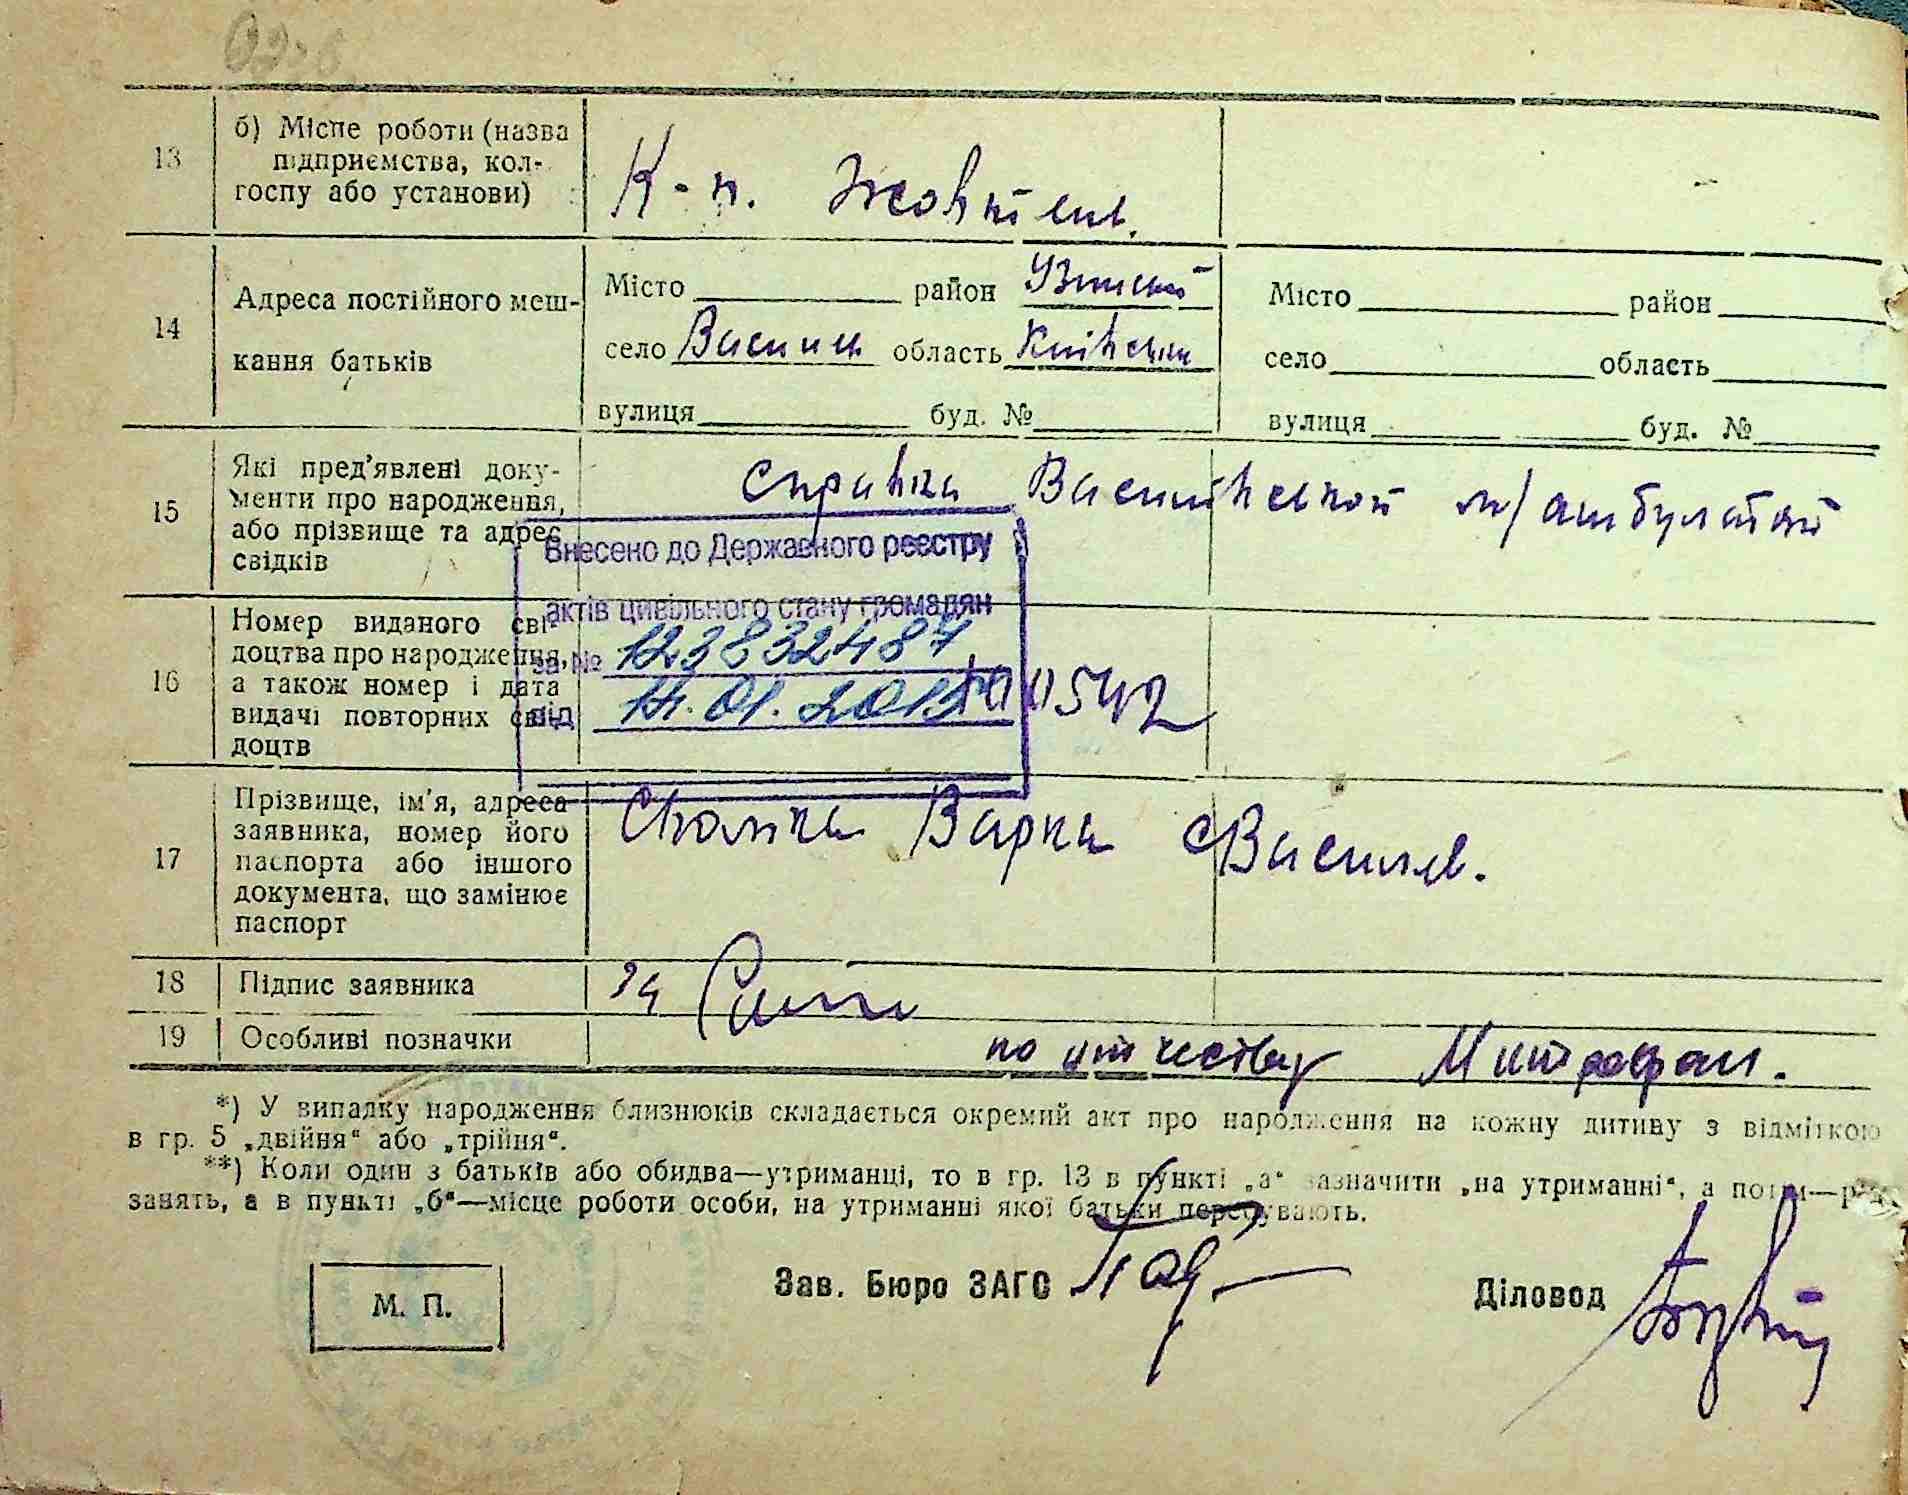 13
б) Місце роботи (назва
підприємства, кол-
госпу або установи)
К-п. Жовтень.
14
Адреса постійного меш-
кання батьків
Місто район Узинский
село Василів область Київська
вулиця буд. №
Місто район
село область
вулиця буд. №
15
Які пред'явлені доку-
менти про народження,
або прізвище та адрес
свідків
справка Василівської м/амбулаторії
Внесено до Державного реєстру
актів цивільного стану громадян
за № 123832487
від 14.01.2015
16
Номер виданого сві-
доцтва про народження,
а також номер і дата
видачі повторних сві-
доцтв
0542
17
Прізвище, ім'я, адреса
заявника, номер його
паспорта або іншого
документа, що замінює
паспорт
Варка Василів.
18
Підпис заявника
за
19
Особливі позначки
по отчеству Митрофан.
*) У випадку народження близнюків складається окремий акт про народження на кожну дитину з відміткою
в гр. 5 „двійня“ або „трійня“.
**) Коли один з батьків або обидва—утриманці, то в гр. 13 в пункті „а“ зазначити „на утриманні“, а потім—рід
занять, а в пункті „б“—місце роботи особи, на утриманні якої батьки перебувають.
М. П.
Зав. Бюро ЗАГС
Діловод